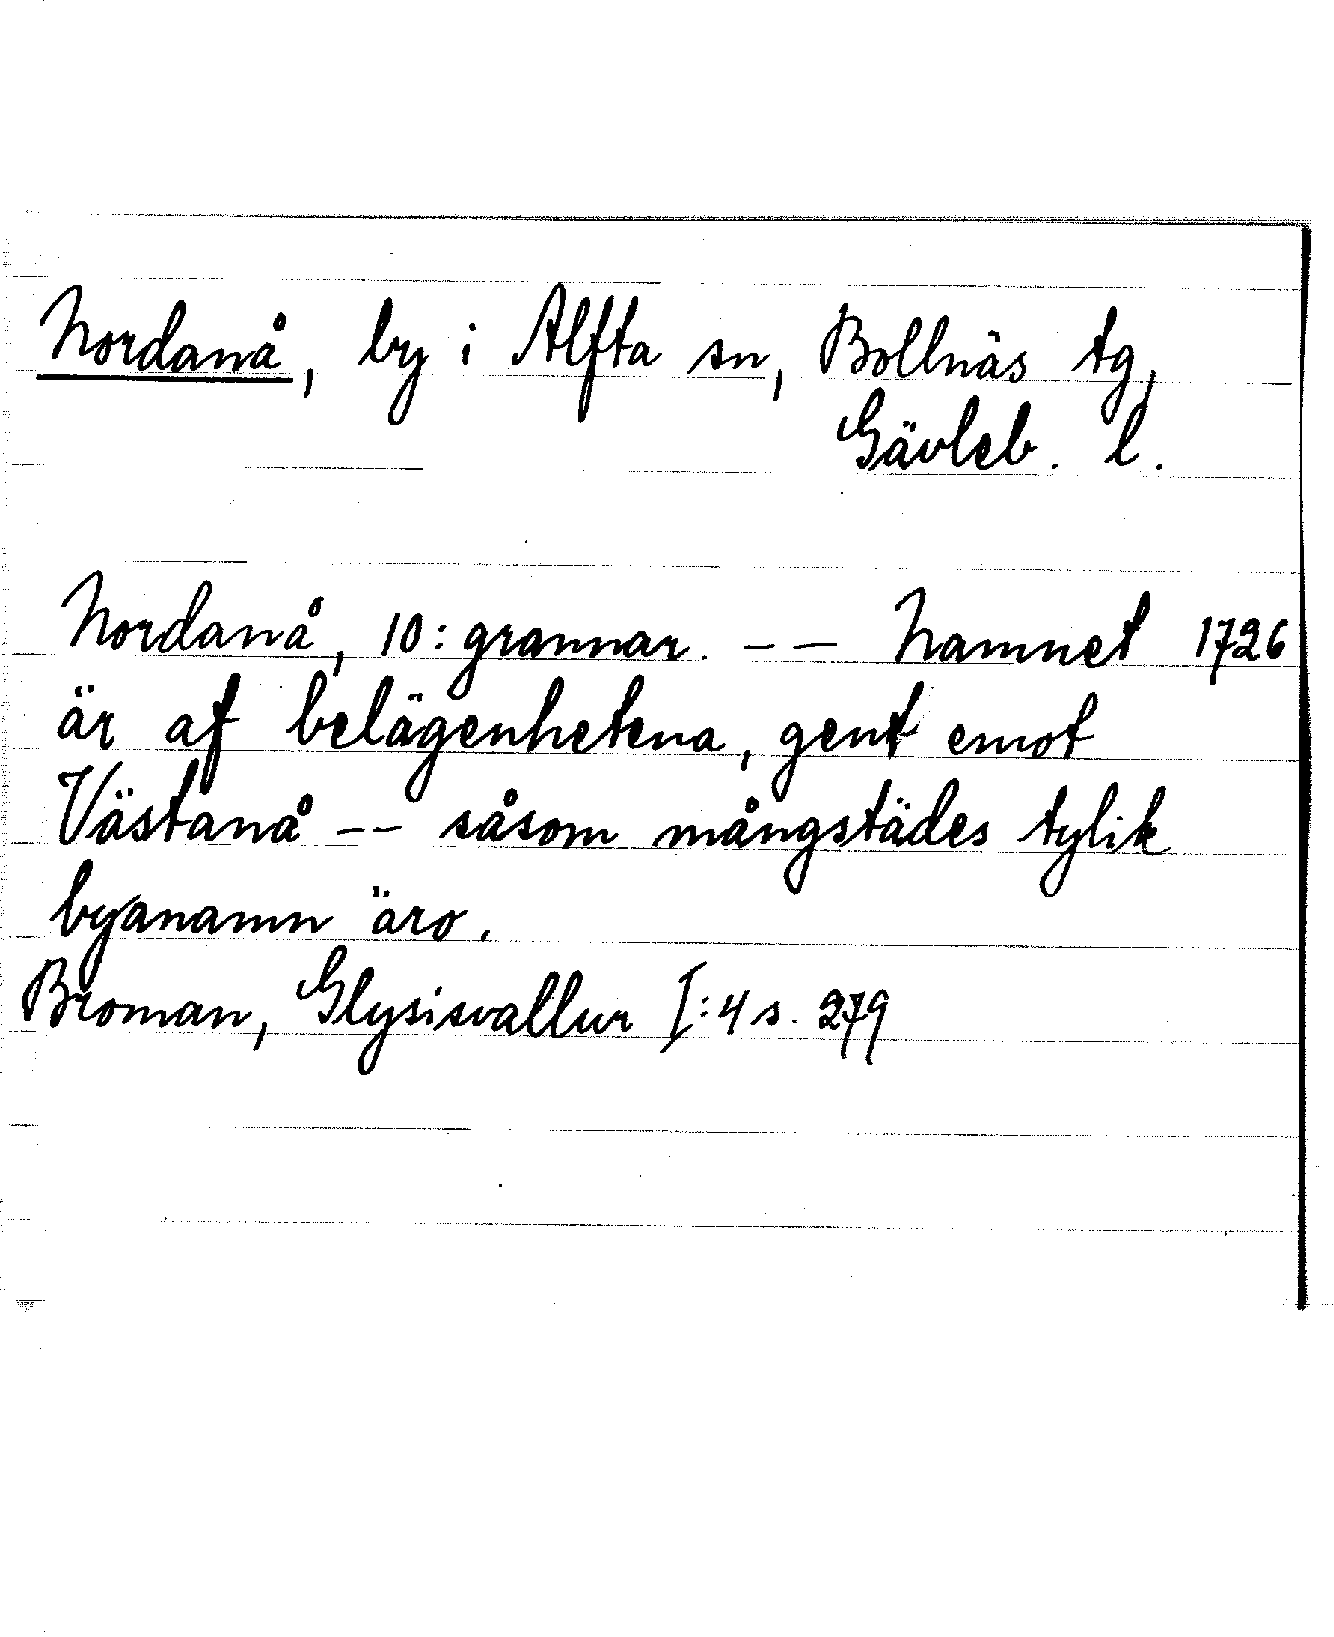 Nordanå, by i Alfta sn, Bollnäs tg,
Gävleb. l.
Nordanå, 10: grannar. -- Namnet 1726
är af belägenhetena, gent emot
Västanå -- såsom mångstädes tylik
byanamn äro.
Broman, Glysisvallur I:4 s. 279